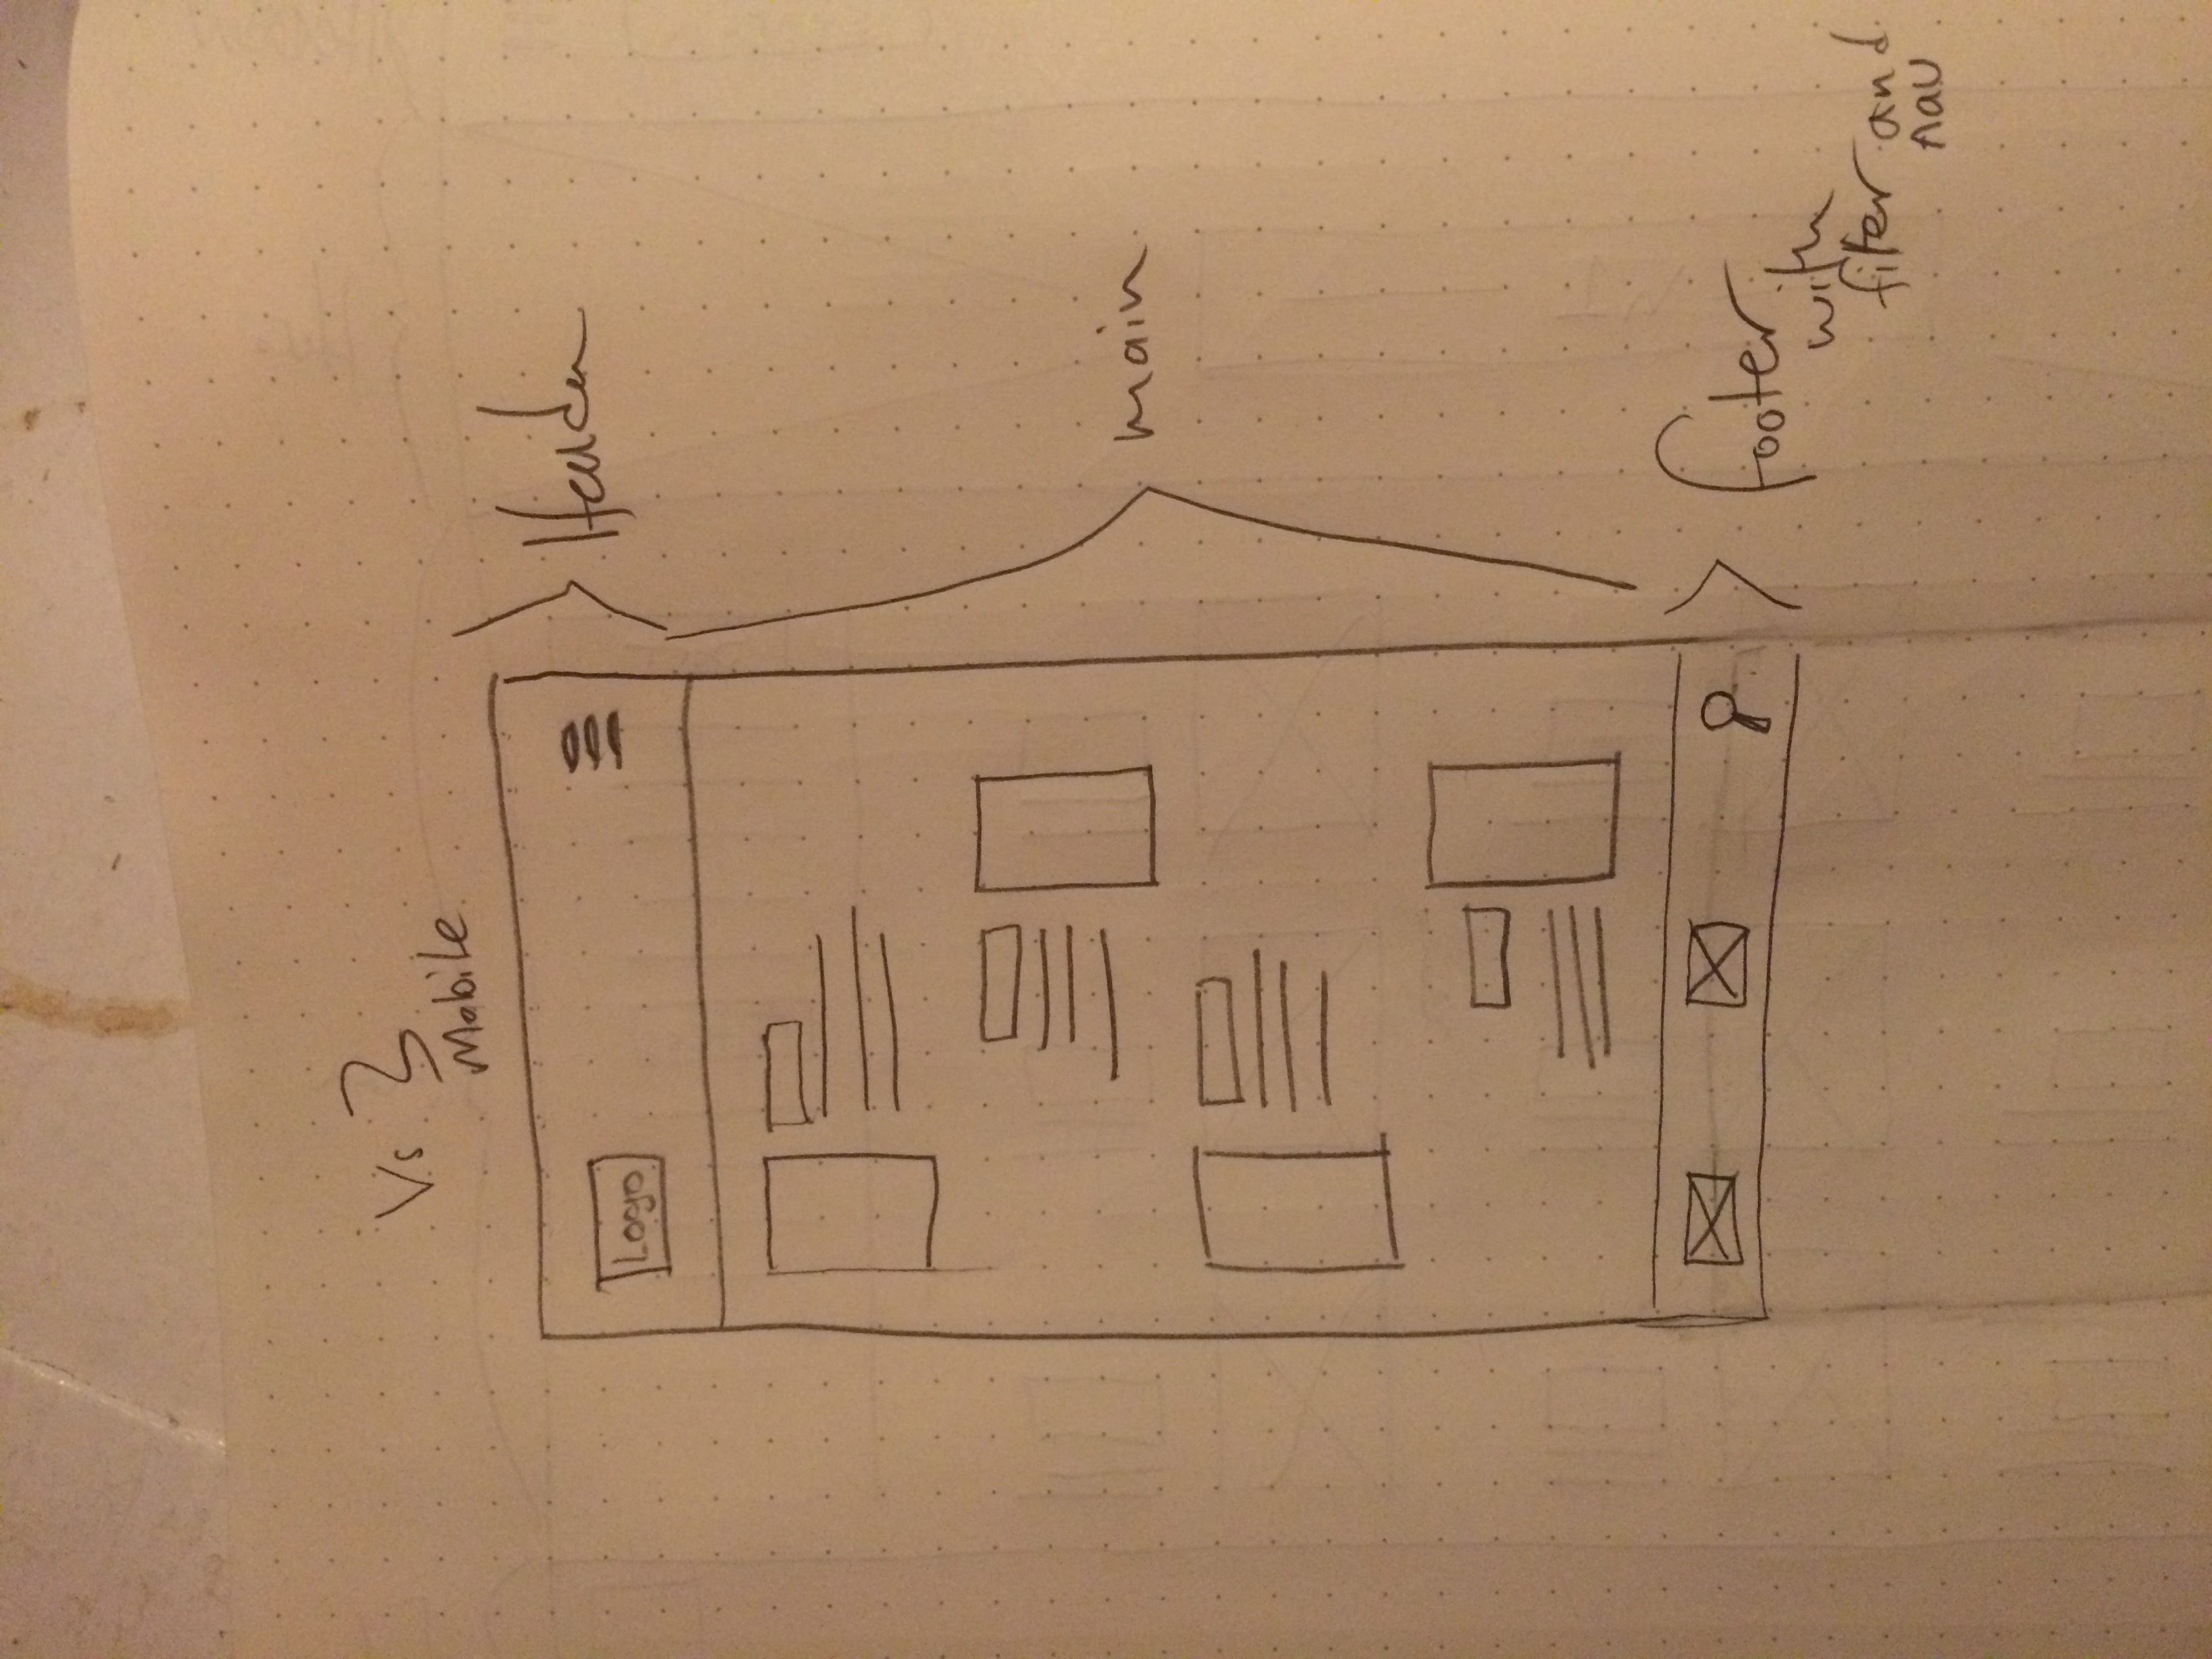 Vs 3
Mobile
Logo
Header
main
footer
with
filter and
nav